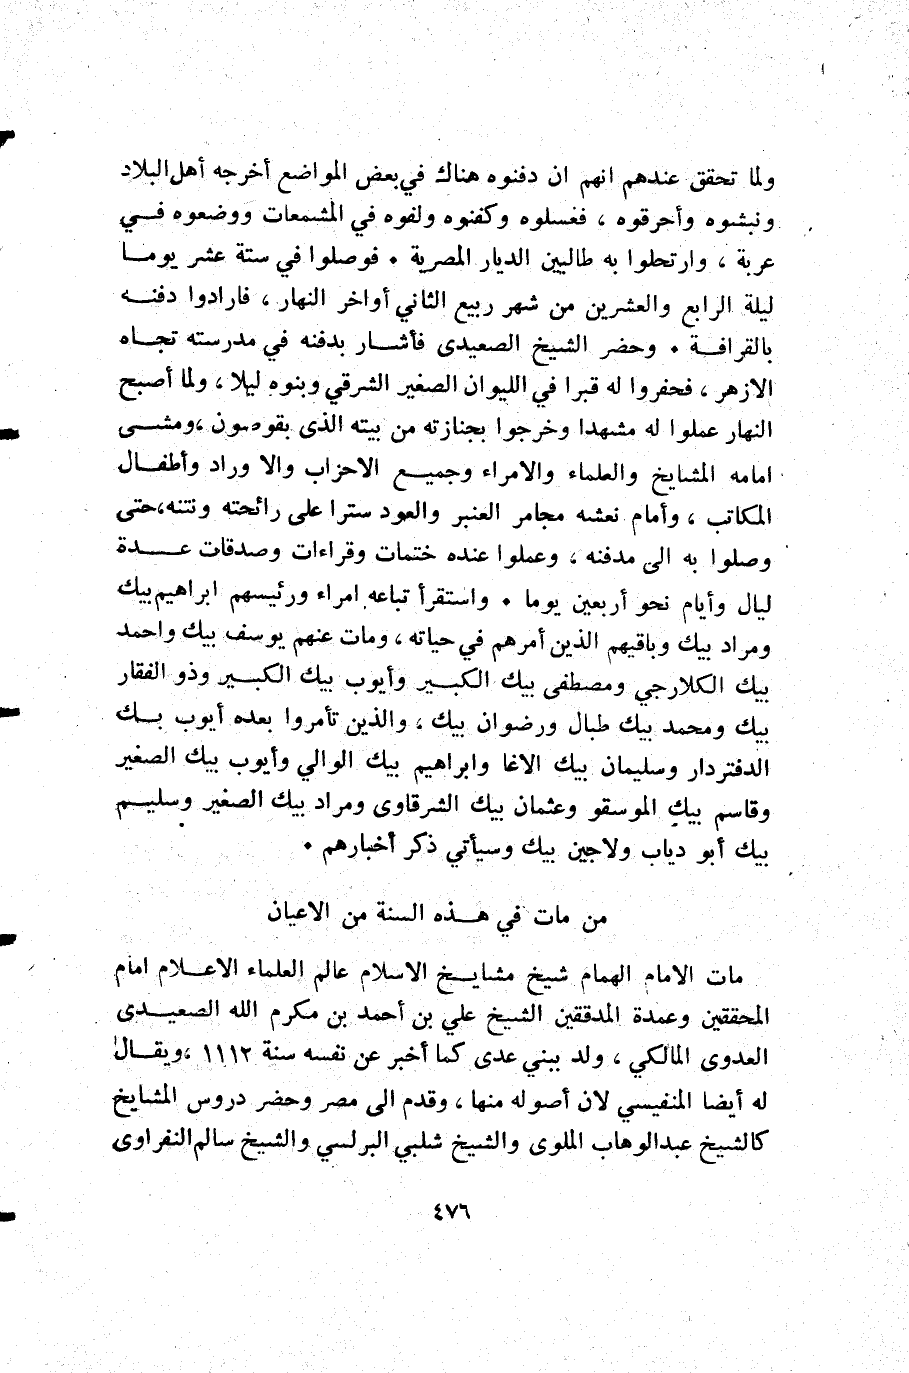 ولما تحقق عندهم انهم ان دفنوه هناك في بعض المواضع أخرجه أهل البلاد
ونبشوه وأحرقوه ، فغسلوه وكفنوه ولفوه في المشمعات ووضعوه فــي
عربة ، وارتحلوا به طالبين الديار المصرية ٠ فوصلوا في ستة عشر يومــا
ليلة الرابع والعشرين من شهر ربيع الثاني أواخر النهار ، فارادوا دفنــه
بالقرافــة ٠ وحضر الشيخ الصعيدى فأشــار بدفنه في مدرسته تجــاه
الازهر ، فحفروا له قبرا في الليوان الصغير الشرقي وبنوه ليلا ، ولما أصبح
النهار عملوا له مشهدا وخرجوا بجنازته من بيته الذى بقوصون ،ومشــى
امامه المشايخ والعلماء والامراء وجميــع الاحزاب والا وراد وأطفــال
المكاتب ، وأمام نعشه مجامر العنبر والعود سترا على رائحته ونتنه،حتى
وصلوا به الى مدفنه ، وعملوا عنده ختمات وقراءات وصدقات عـــدة
ليال وأيام نحو أربعين يوما ٠ واستقرأ تباعه امراء ورئيسهم ابراهيم بيك
ومراد بيك وباقيهم الذين أمرهم في حياته ، ومات عنهم يوسف بيك واحمد
بيك الكلارجي ومصطفى بيك الكبــير وأيوب بيك الكبــير وذو الفقار
بيك ومحمد بيك طبال ورضوان بيك ، والذين تأمروا بعده أيوب بــك
الدفتردار وسليمان بيك الاغا وابراهيم بيك الوالي وأيوب بيك الصغير
وقاسم بيك الموسقو وعثمان بيك الشرقاوى ومراد بيك الصغير وسليــم
بيك أبو دياب ولاجين بيك وسيأتي ذكر أخبارهم ٠
من مات في هــذه السنة من الاعيان
مات الامام الهمام شيخ مشايــخ الاسلام عالم العلماء الاعــلام امام
المحققين وعمدة المدققين الشيخ علي بن أحمد بن مكرم الله الصعيــدى
العدوى المالكي ، ولد ببني عدى كما أخبر عن نفسه سنة ١١١٢ ،ويقــال
له أيضا المنفيسي لان أصوله منها ، وقدم الى مصر وحضر دروس المشايخ
كالشيخ عبدالوهاب الملوى والشيخ شلبي البرلسي والشيخ سالم النفراوى
٤٧٦